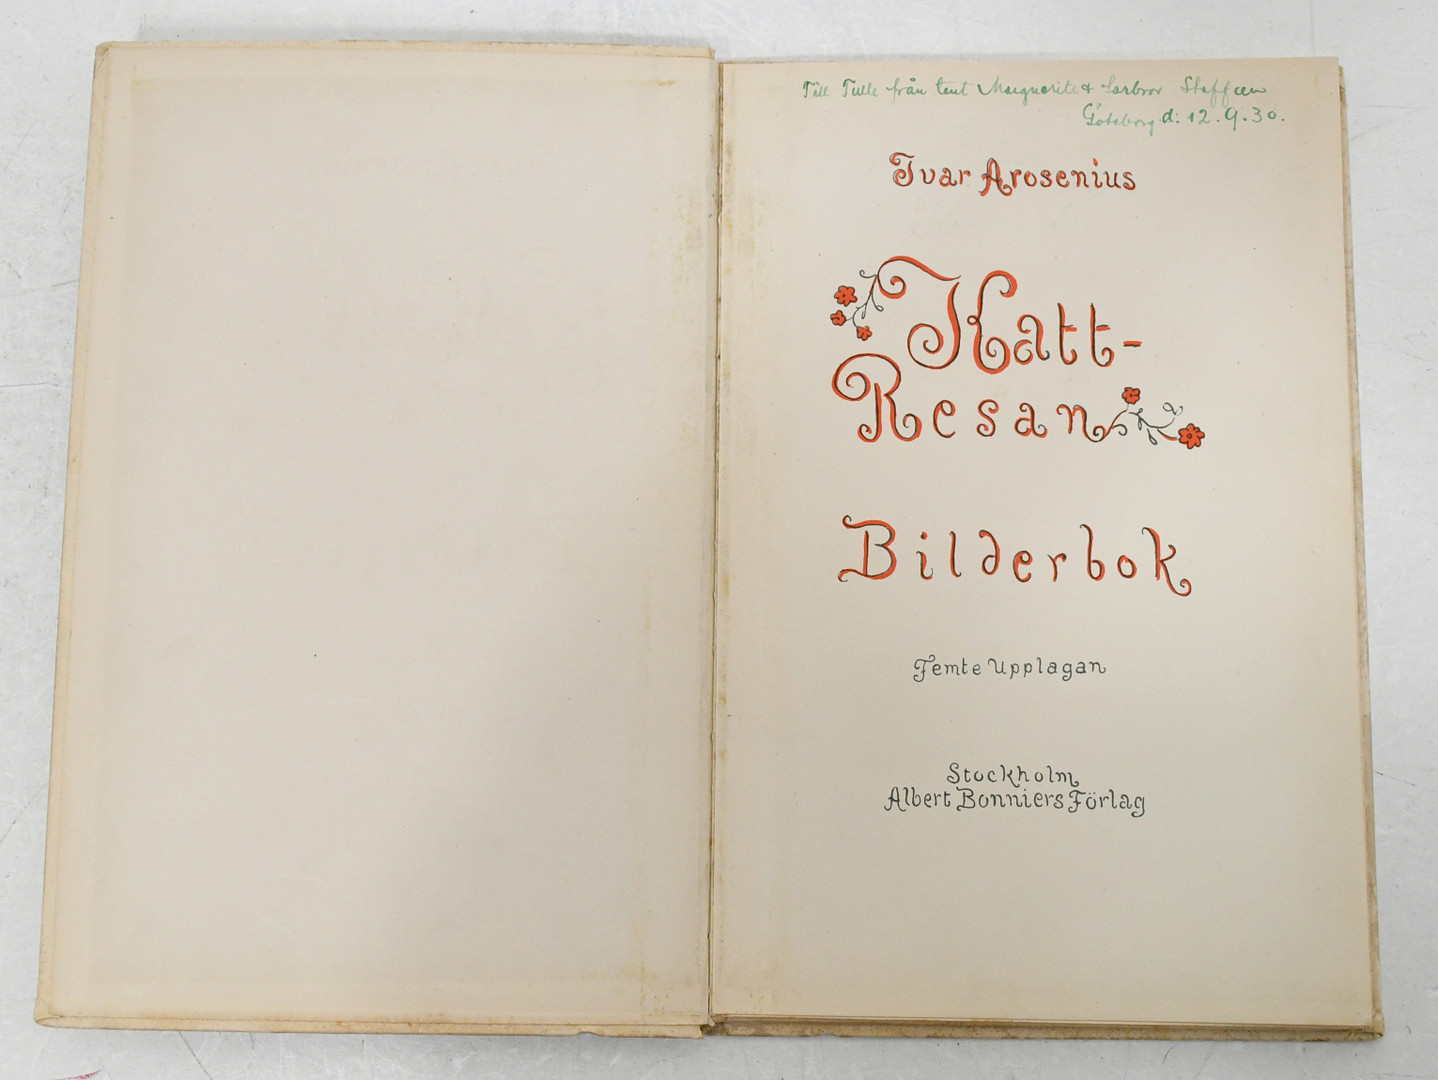 Till Tulle från tant Marguerite & farbror Staffan
Göteborg d: 12.9.30.
Ivar Arosenius
Katt-
Resan
Bilderbok
Femte Upplagan
Stockholm
Albert Bonniers Förlag